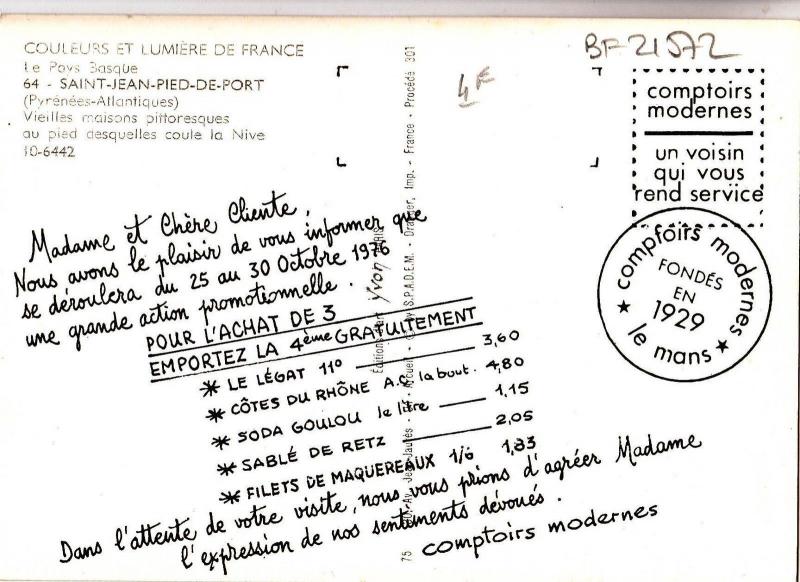 COULEURS ET LUMIÈRE DE FRANCE
Le Pays Basque
64 - SAINT-JEAN-PIED-DE-PORT
(Pyrénées-Atlantiques)
Vieilles maisons pittoresques
au pied desquelles coule la Nive
10-6442
BF 21572
4F
comptoirs
modernes
un voisin
qui vous
rend service
comptoirs modernes
FONDÉS
EN
1929
★ le mans ★
Madame et Chère Cliente,
Nous avons le plaisir de vous informer que
se déroulera du 25 au 30 Octobre 1976
une grande action promotionnelle.
POUR L'ACHAT DE 3
EMPORTEZ LA 4ème GRATUITEMENT
* LE LÉGAT 11° 3,60
* CÔTES DU RHÔNE A.C la bout. 4,80
* SODA GOULOU le litre 1,15
* SABLÉ DE RETZ 2,05
* FILETS DE MAQUEREAUX 1/6 1,83
Dans l'attente de votre visite, nous vous prions d'agréer Madame
l'expression de nos sentiments dévoués.
comptoirs modernes
Éditions d'Art yvon Av. Jean-Jaurès Arcueil S.P.A.D.E.M. - Draeger, Imp. - France - Procédé 301